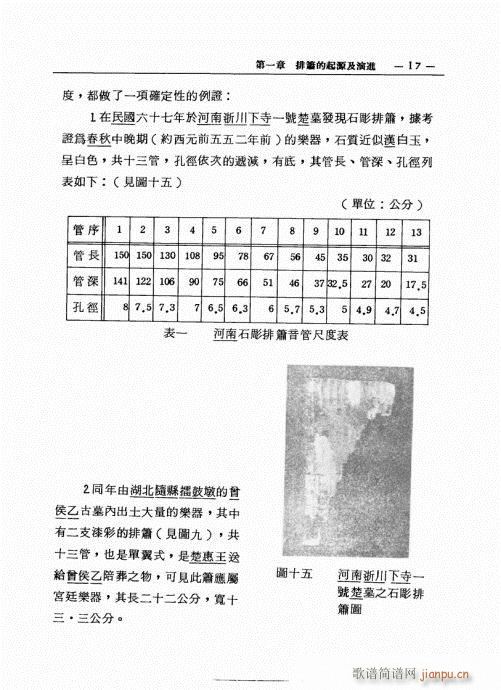 第一章　排簫的起源及演進　—17—
度，都做了一項確定性的例證：
1.在民國六十七年於河南浙川下寺一號楚墓發現石彫排簫，據考
證爲春秋中晚期（約西元前五五二年前）的樂器，石質近似漢白玉，
呈白色，共十三管，孔徑依次的遞減，有底，其管長、管深、孔徑列
表如下：（見圖十五）
（單位：公分）
管序 1 2 3 4 5 6 7 8 9 10 11 12 13
管長 150 150 130 108 95 78 67 56 45 35 30 32 31
管深 141 122 106 90 75 66 51 46 37 32.5 27 20 17.5
孔徑 8 7.5 7.3 7 6.5 6.3 6 5.7 5.3 5 4.9 4.7 4.5
表一　河南石彫排簫音管尺度表
2.同年由湖北隨縣擂鼓墩的曾
侯乙古墓內出土大量的樂器，其中
有二支漆彩的排簫（見圖九），共
十三管，也是單翼式，是楚惠王送
給曾侯乙陪葬之物，可見此簫應屬
宮廷樂器，其長二十二公分，寬十
三·三公分。
圖十五　河南浙川下寺一
號楚墓之石彫排
簫圖
歌谱简谱网
jianpu.cn